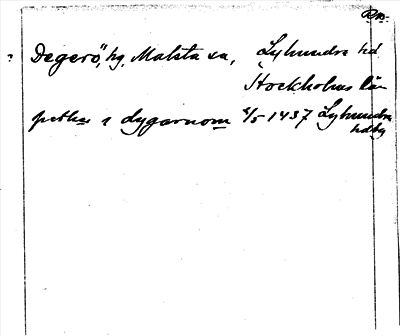 Degerö, hg, Malsta sn, Lyhundra hd
Stockholms län
pethar i dygarnom 4/5 1437 Lyhundra
hdbg